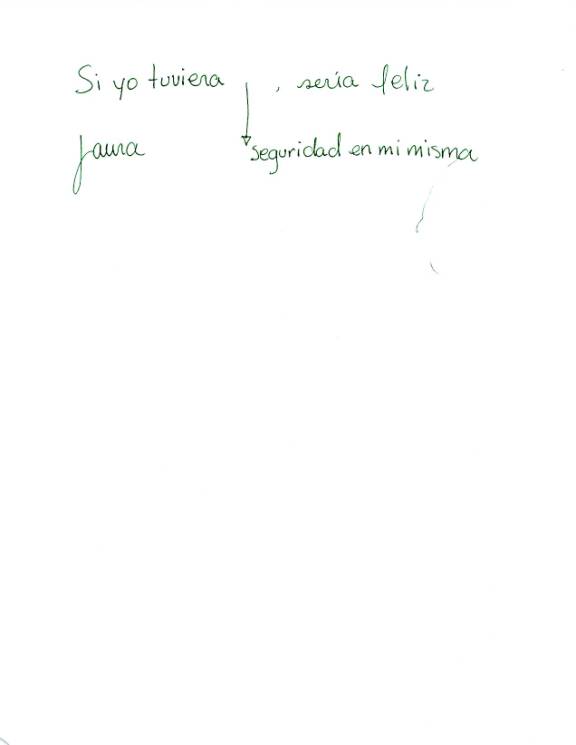 Si yo tuviera , sería feliz
Laura seguridad en mi misma